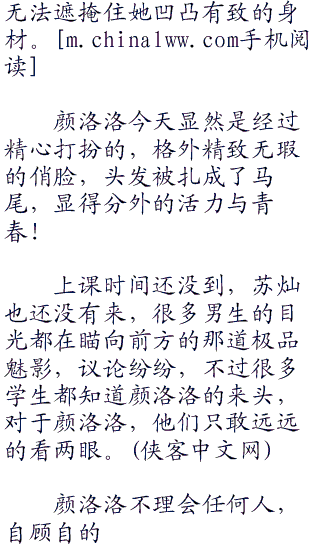 无法遮掩住她凹凸有致的身
材。[m.china1ww.com手机阅
读]
颜洛洛今天显然是经过
精心打扮的，格外精致无瑕
的俏脸，头发被扎成了马
尾，显得分外的活力与青
春！
上课时间还没到，苏灿
也还没有来，很多男生的目
光都在瞄向前方的那道极品
魅影，议论纷纷，不过很多
学生都知道颜洛洛的来头，
对于颜洛洛，他们只敢远远
的看两眼。(侠客中文网)
颜洛洛不理会任何人，
自顾自的